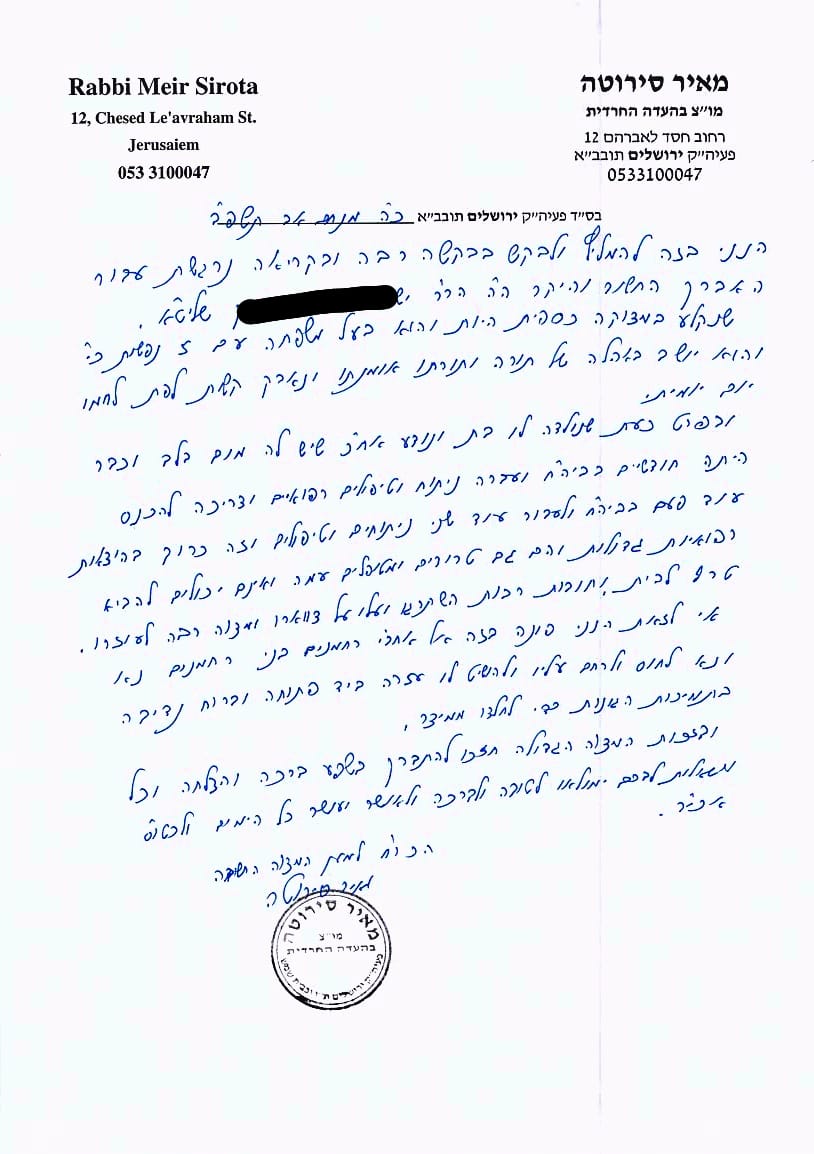 Rabbi Meir Sirota
12, Chesed Le'avraham St.
Jerusaiem
053 3100047
מאיר סירוטה
מו״צ בהעדה החרדית
רחוב חסד לאברהם 12
פעיה״ק ירושלים תובב״א
0533100047
בס״ד פעיה״ק ירושלים תובב״א כ"ה מנחם אב תשפ"ב
הנני בזה להמליץ ולבקש בבקשה רבה ובקריאה נרגשת עבור
האברך החשוב והיקר ה"ה הר"ר שליט"א.
שנקלע במצוקה כספית היות והוא בעל משפחה עם ז נפשות כ"י
והוא יושב באהלה של תורה ותורתו אומנתו ונאבק קשות לפת לחמו
יום יומית.
ובפרט כעת שנולדה לו בת ונודע אח"כ שיש לה מום בלב וכבר
היתה חודשיים בביה"ח ועברה ניתוח וטיפולים רפואיים וצריכה להכנס
עוד פעם בביה"ח ולעבור עוד שני ניתוחים וטיפולים וזה כרוך בהוצאות
רפואיות גדולות והם גם טרורים ומטפלים עמה ואינם יכולים להביא
טרף לבית, וחובות רבות השתרגו ועלו על צווארו ומצוה רבה לעוזרו.
אי לזאת הנני פונה בזה אל אחב"י רחמנים בני רחמנים נא
ונא לחוס ולרחם עליו ולהושיט לו עזרה ביד פתוחה וברוח נדיבה
בתמיכות הגונות כדי לחלצו ממיצר.
ובזכות המצוה הגדולה תזכו להתברך בשפע ברכה והצלחה וכל
משאלות לבכם ימולאו לטובה ולברכה ולאושר ועושר כל הימים ולכט"ס
אכי"ר.
הכו"ח למען המצוה החשובה
מאיר סירוטה
מאיר סירוטה
מו״צ
בהעדה החרדית